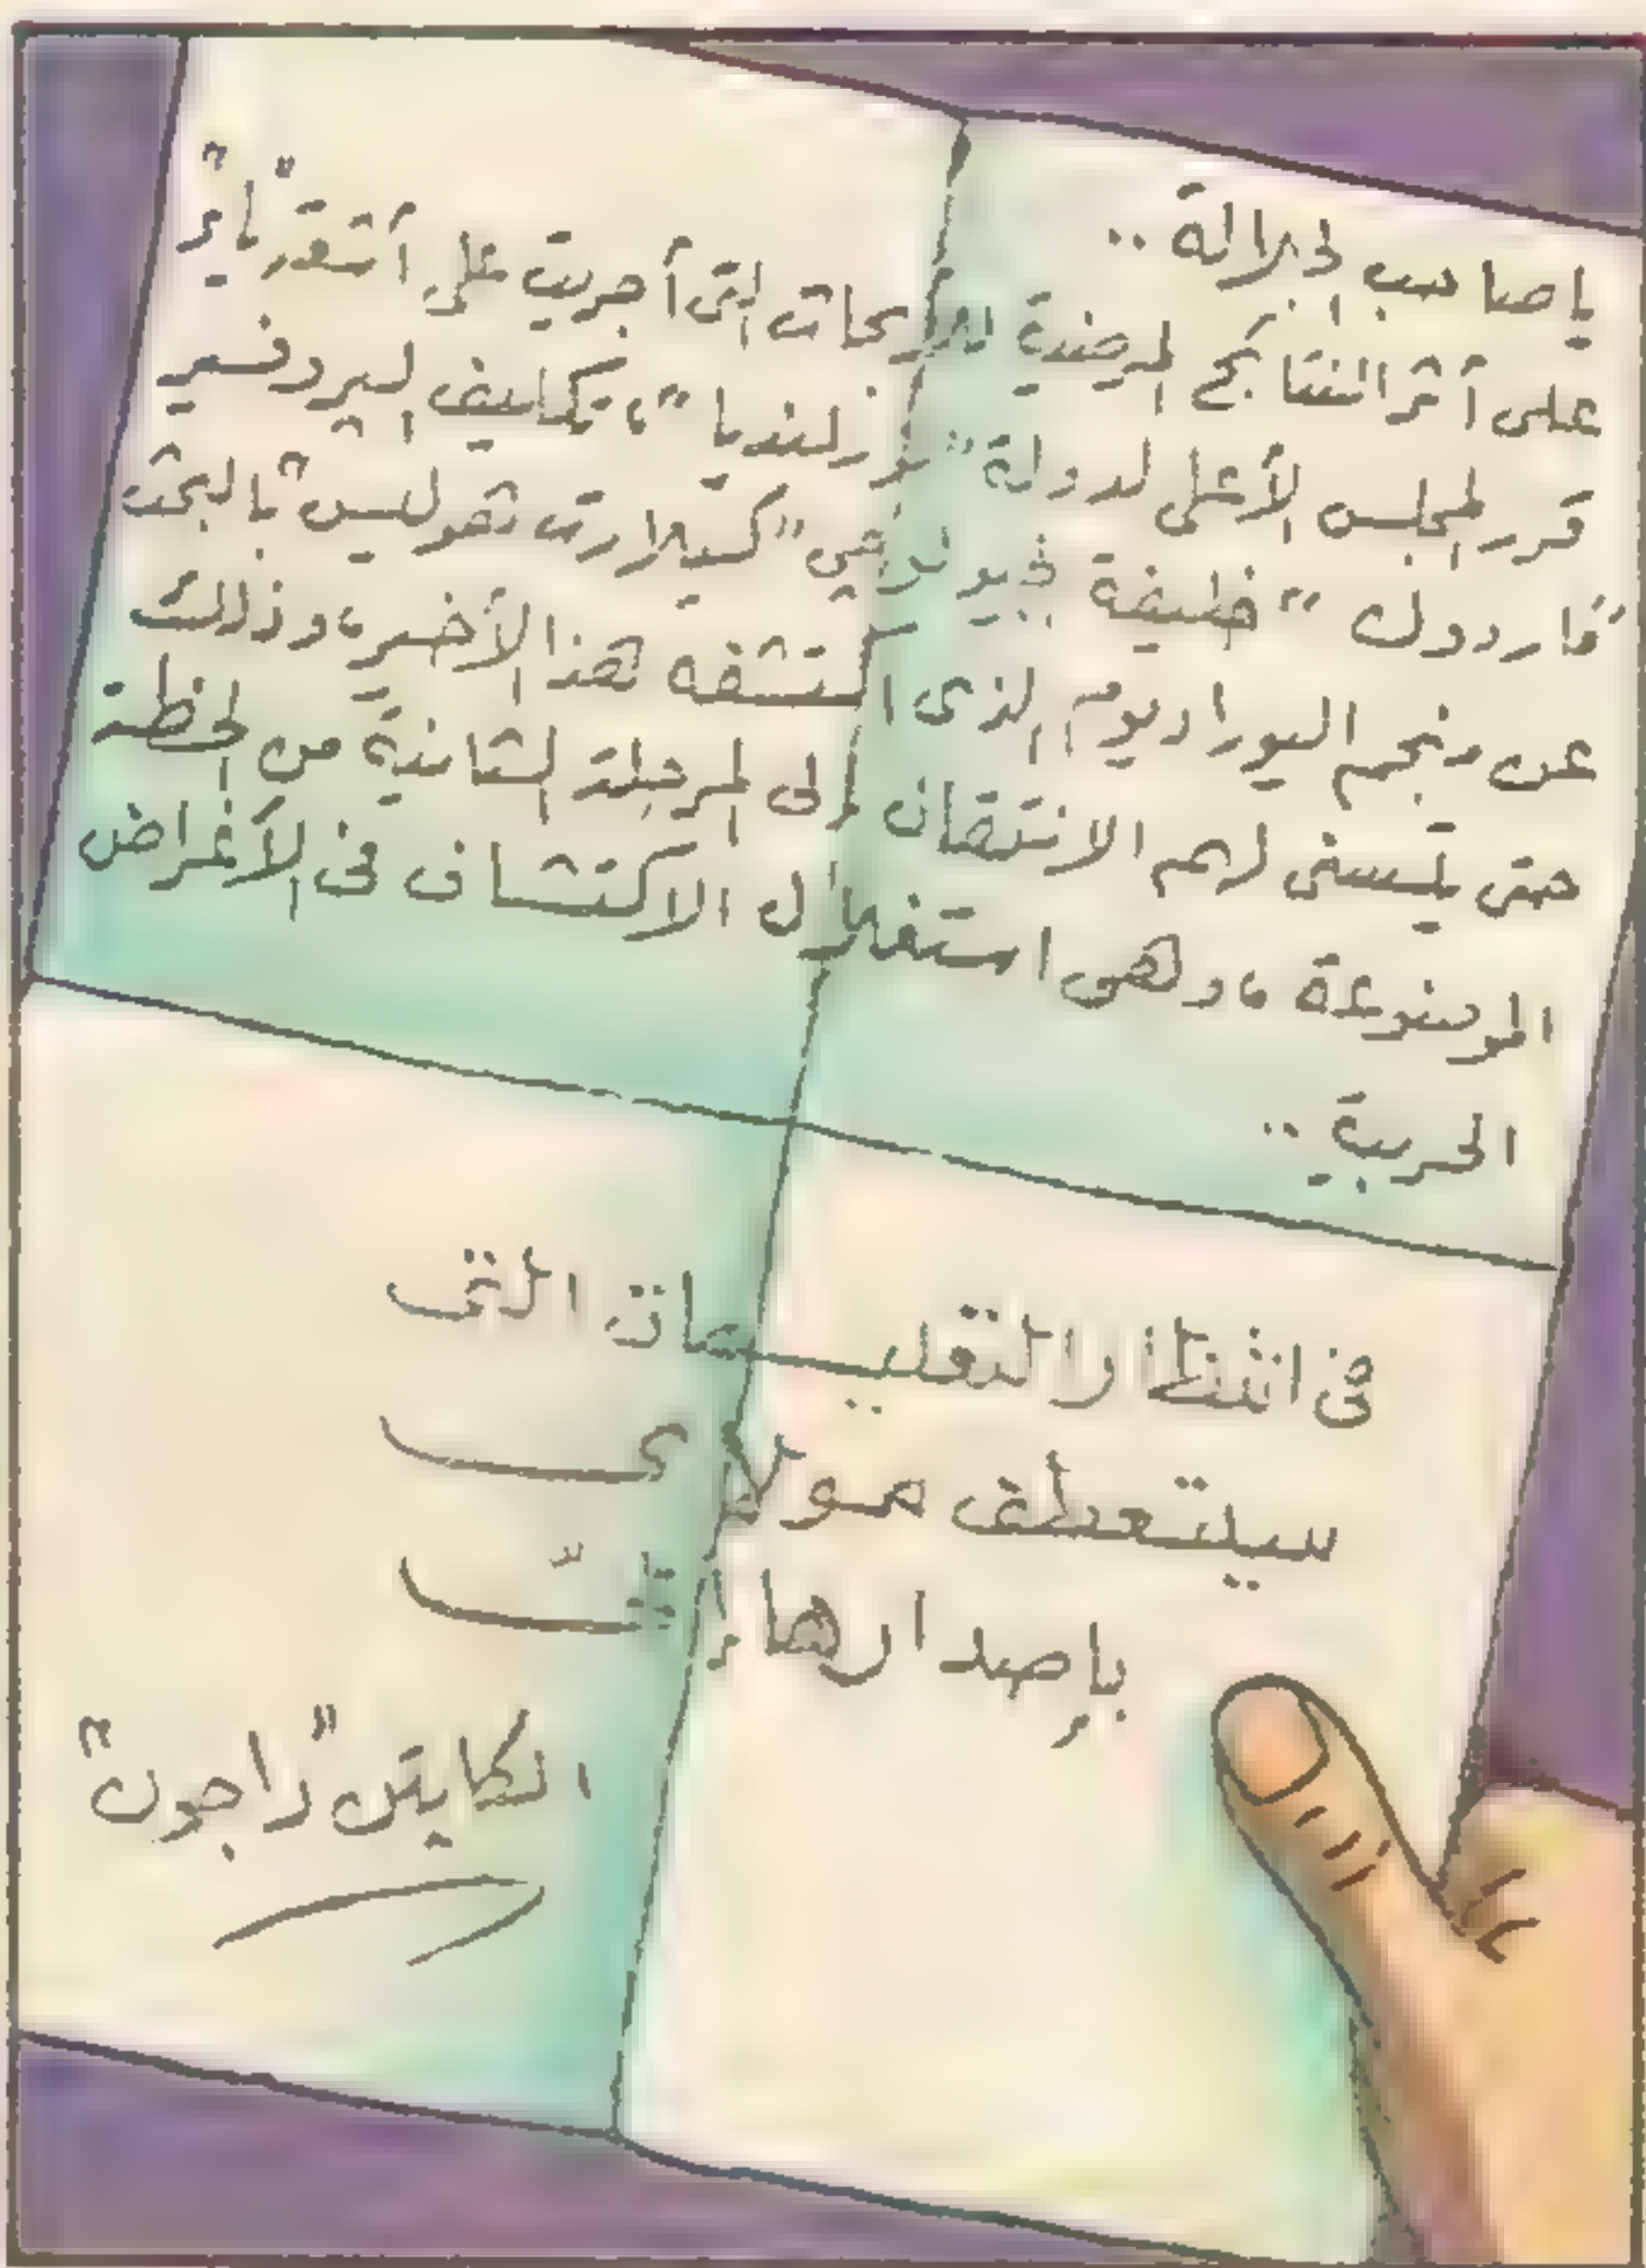 يا صاحب الجلالة ..
على أثر النتائج المرضية للأبحاث التى أجريت على أشعة "
قرر المجلس الأعلى لدولة " " ، تكليف البروفسير
"فاردوك" خليفة "كيلارت تهوليس" بالبحث
عن منجم اليوراديوم الذى اكتشفه هذا الأخير، وذلك
حتى يتسنى لهم الانتقال إلى المرحلة الثانية من الخطة
الموضوعة ، وهى استغلال الاكتشاف فى الأغراض
الحربية ..
فى انتظار التعليمات التى
سيتعطف مولاى
بإصدارها إلىّ
الكابتن "راجون"